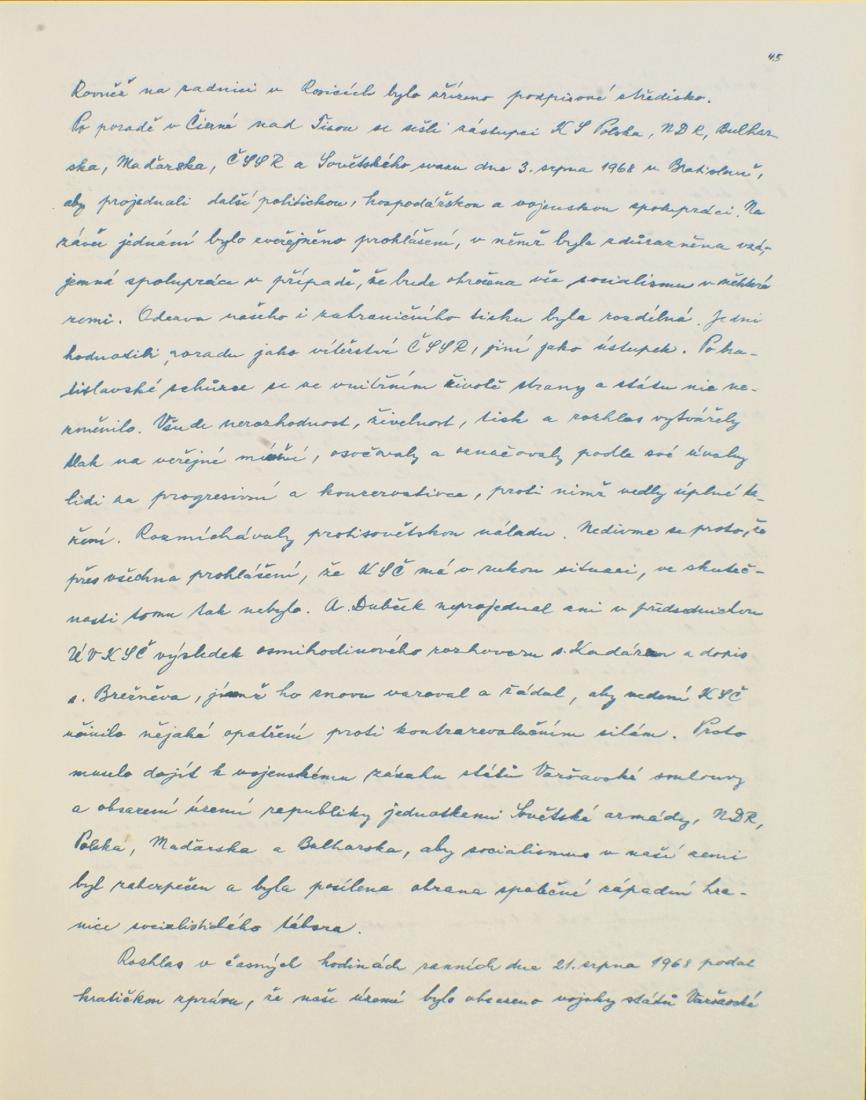 45
Rovněž na radnici v Rosicích bylo zřízeno podpisové středisko.
Po poradě v Čierné nad Tisou se sešli zástupci KS Polska, NDR, Bulhar-
ska, Maďarska, ČSSR a Sovětského svazu dne 3. srpna 1968 v Bratislavě,
aby projednali další politickou, hospodářskou a vojenskou spolupráci. Na
závěr jednání bylo zveřejněno prohlášení, v němž byla zdůrazněna vzá-
jemná spolupráce v případě, že bude ohrožena věc socialismu v některé
zemi. Odezva našeho i zahraničního tisku byla rozdílná. Jedni
hodnotili poradu jako vítězství ČSSR, jiní jako ústupek. Po bra-
tislavské schůzce se ve vnitřním životě strany a státu nic ne-
změnilo. Všude nerozhodnost, živelnost, tisk a rozhlas vytvářely
tlak na veřejné mínění, osočovaly a označovaly podle své úvahy
lidi za progresivní a konzervativce, proti nimž vedly úplné ta-
žení. Rozmíchávaly protisovětskou náladu. Nedivme se proto, že
přes všechna prohlášení, že KSČ má v rukou situaci, ve skuteč-
nosti tomu tak nebylo. A. Dubček neprojednal ani v předsednictvu
ÚV KSČ výsledek osmihodinového rozhovoru s. Kadárem a dopis
s. Brežněva, jímž ho znovu varoval a žádal, aby vedení KSČ
učinilo nějaká opatření proti kontrarevolučním silám. Proto
muselo dojít k vojenskému zásahu států Varšavské smlouvy
a obsazení území republiky jednotkami Sovětské armády, NDR,
Polska, Maďarska a Bulharska, aby socialismus v naší zemi
byl zabezpečen a byla posílena obrana společné západní hra-
nice socialistického tábora.
Rozhlas v časných hodinách ranních dne 21. srpna 1968 podal
kratičkou zprávu, že naše území bylo obsazeno vojsky států Varšavské